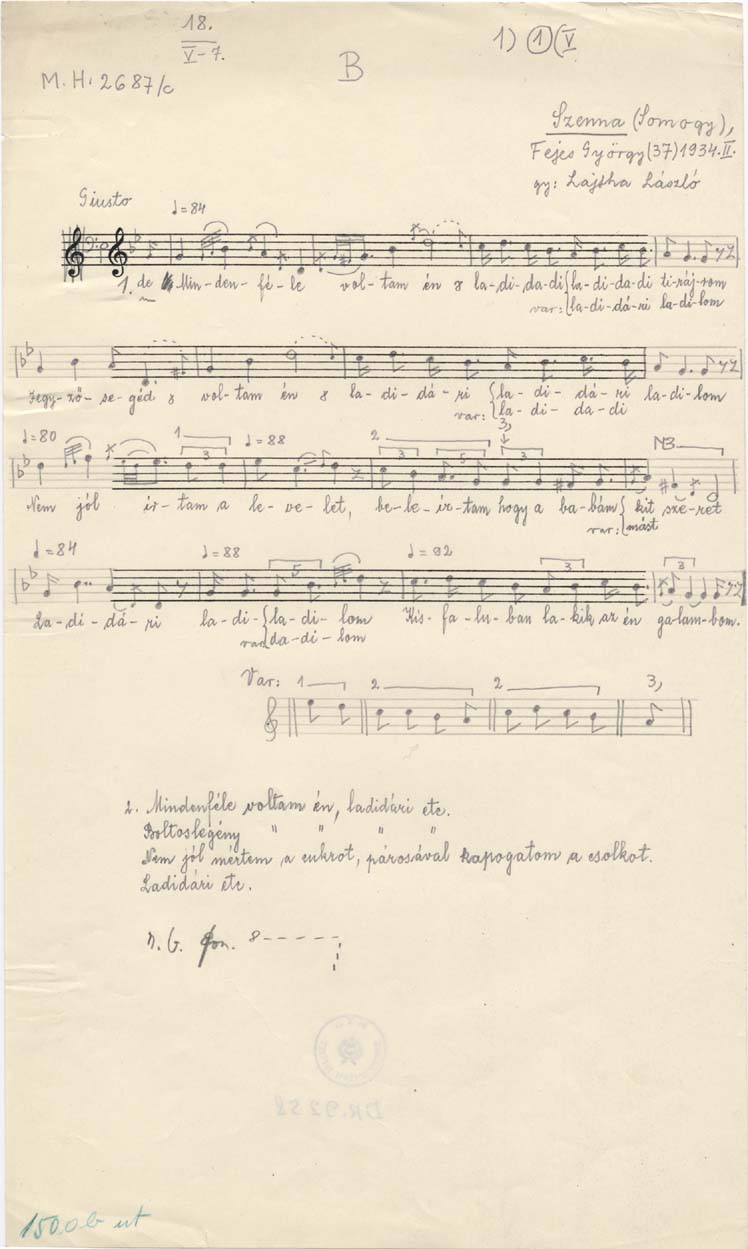 18.
V-7.
1) 1 (V
M.H. 2687/c
B
Szenna (Somogy),
Fejes György (37) 1934. II.
gy: Lajtha László
Giusto ♩=84
1. de Min-den-fé-le vol-tam én 8 la-di-da-di {la-di-da-di ti-ráj-rom
var: {la-di-dá-ri la-di-lom
Jegy-ző-se-géd 8 vol-tam én 8 la-di-dá-ri {la-di-dá-ri la-di-lom
var: {la-di-da-di
3,
♩=80 1 3 ♩=88 2 5 3 NB
Nem jól ír-tam a le-ve-let, be-le-ír-tam hogy a ba-bám {kit sze-ret
var: {mást
♩=84 ♩=88 5 ♩=92 3 3
La-di-dá-ri la-di-{la-di-lom Kis-fa-lu-ban la-kik az én ga-lam-bom.
var {da-di-lom
Var: 1 2 2 3,
2. Mindenféle voltam én, ladidári etc.
Boltoslegény " " " "
Nem jól mértem a cukrot, párosával kapogatom a csolkot.
Ladidári etc.
Fon. 8-----
DR. 9258